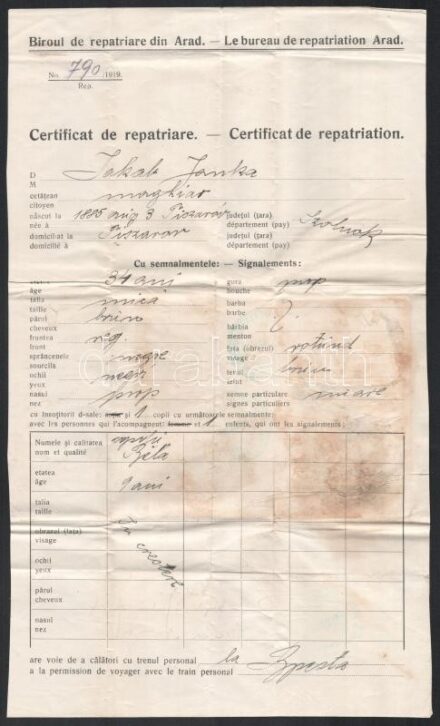 Biroul de repatriare din Arad. — Le bureau de repatriation Arad.
No. 790/1919.
Rep.
Certificat de repatriare. — Certificat de repatriation.
D
M Jakab Janka
cetățean
citoyen maghiar
născut la 1885 aug 3 Tiszavár județul (țara)
née à département (pay) Szolnok
domiciliat la Tiszavar județul (țara)
domicilié à département (pay)
Cu semnalmentele: — Signalements:
etatea 34 ani gura prop
âge bouche
talia mica barba
taille barbe
părul brun bărbia
cheveux menton
fruntea reg fața (obrazul) rotund
front visage
sprâncenele negre teint brun
sourcils teint
ochii negri semne particulare
yeux signes particuliers
nasul prop
nez
cu însoțitorii d-sale: și 1 copii cu următoarele semnalmente:
avec les personnes qui l'acompagnent: et 1 enfants, qui ont les signalements:
Numele și calitatea copil
nom et qualité Béla
etatea 9 ani
âge
talia
taille In crestere
obrazul (fața)
visage
ochii
yeux
părul
cheveux
nasul
nez
are voie de a călători cu trenul personal la Bpesta
a la permission de voyager avec le train personal
darabanth